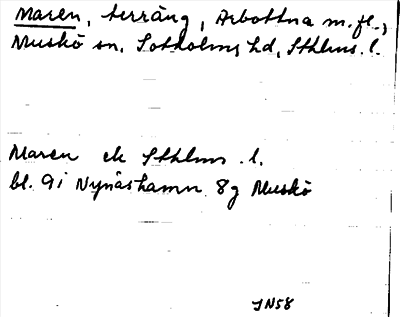 Maren, terräng, Arbottna m.fl.,
Muskö sn, Sotholms hd, Sthlms l.
Maren ek Sthlms l.
bl. 9i Nynäshamn 8g Muskö
JN58